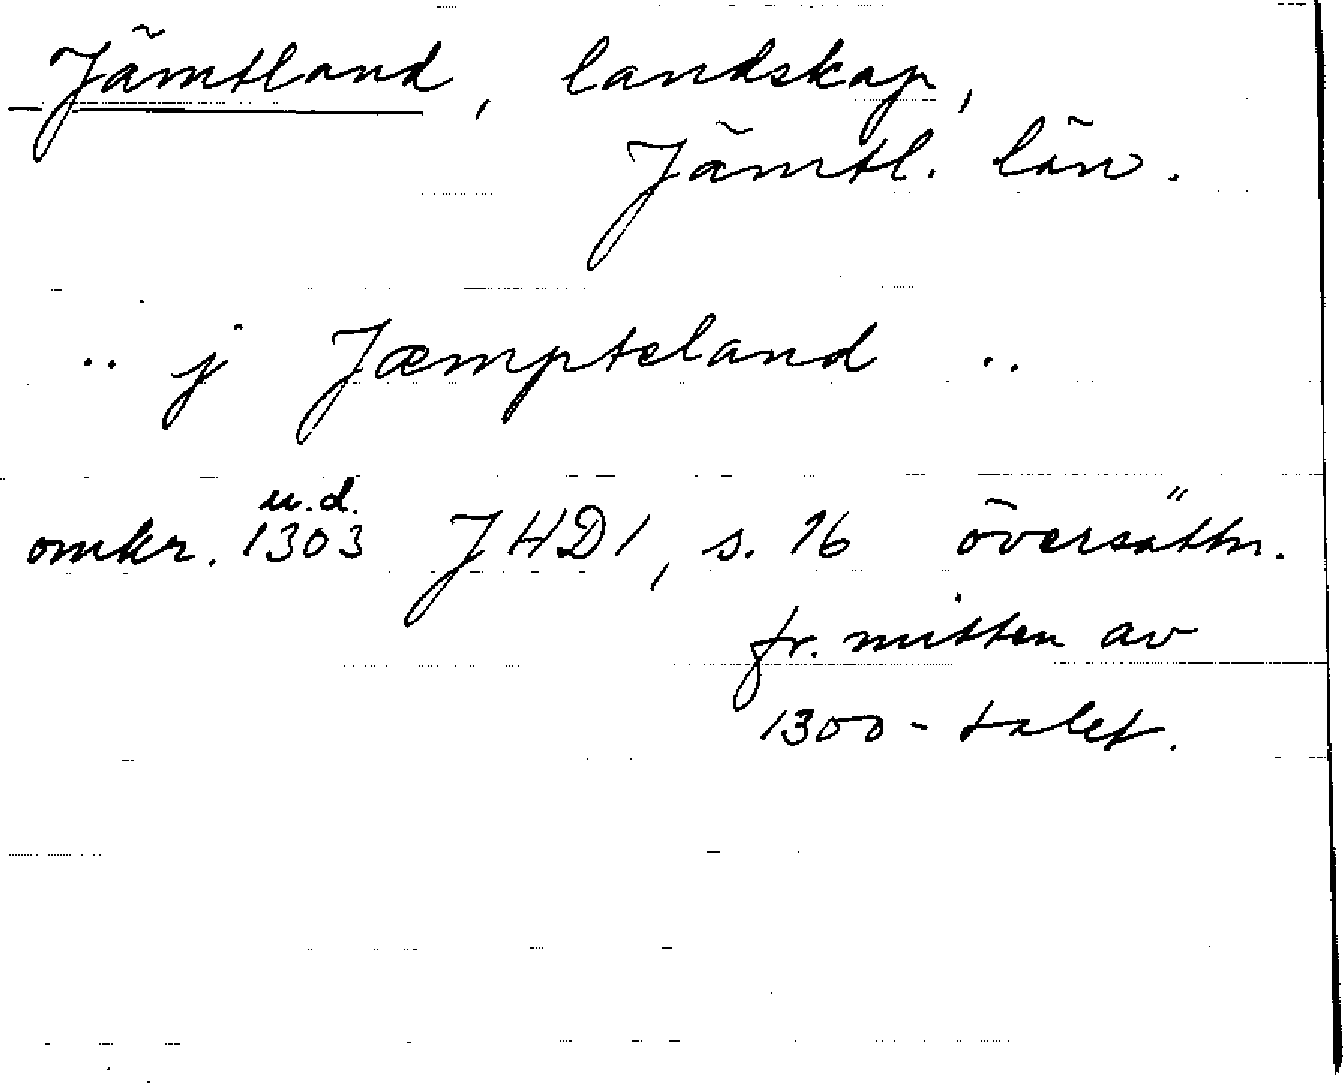 Jämtland, landskap,
Jämtl. län.
.. j Jæmpteland ..
u.d.
omkr. 1303 JHD1, s. 16 översättn.
fr. mitten av
1300-talet.